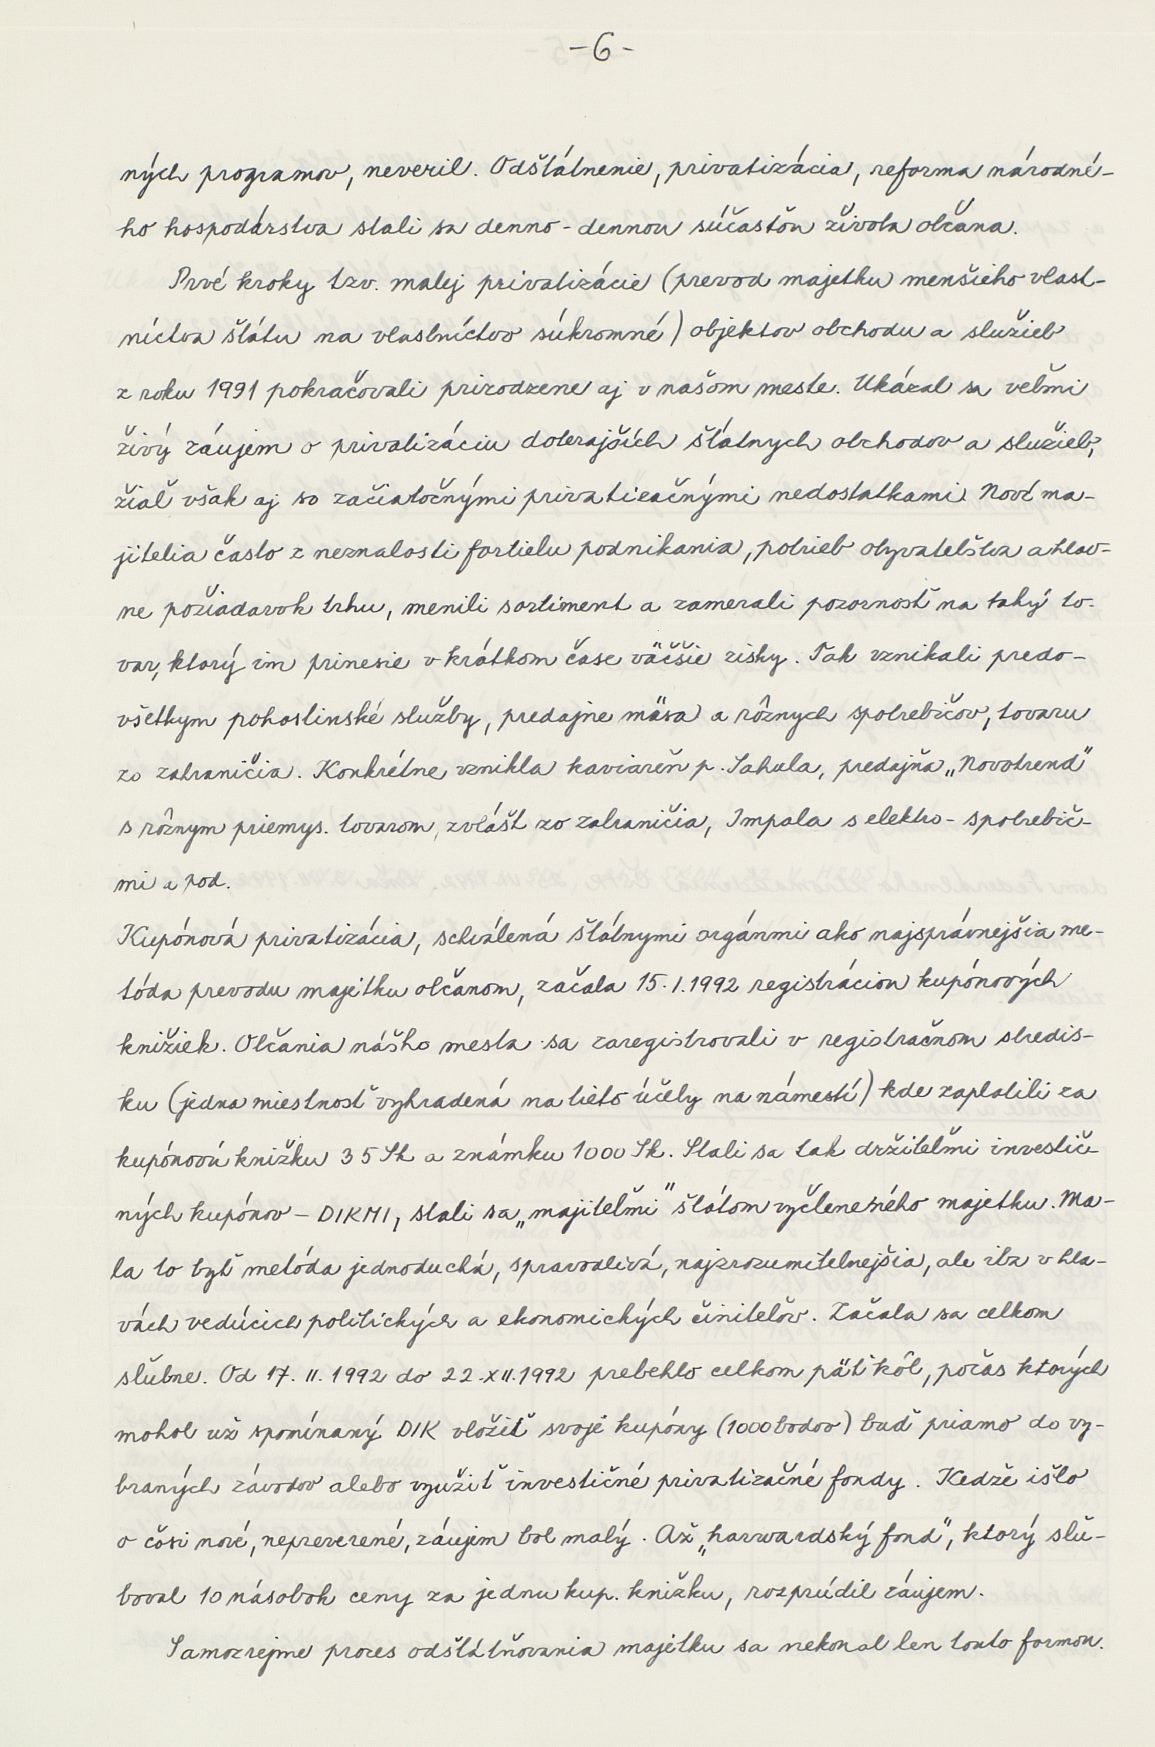 -6-
ných programov, neveril. Odštátnenie, privatizácia, reforma národné-
ho hospodárstva stali sa denno-dennou súčasťou života občana.
Prvé kroky tzv. malej privatizácie (prevod majetku menšieho vlast-
níctva štátu na vlastníctvo súkromné) objektov obchodu a služieb
z roku 1991 pokračovali prirodzene aj v našom meste. Ukázal sa veľmi
živý záujem o privatizáciu doterajších štátnych obchodov a služieb,
žiaľ však aj so začiatočnými privatizačnými nedostatkami. Noví ma-
jitelia často z neznalosti fortieľu podnikania, potrieb obyvateľstva a hlav-
ne požiadavok trhu, menili sortiment a zamerali pozornosť na taký to-
var, ktorý im prinesie v krátkom čase väčšie zisky. Tak vznikali predo-
všetkym pohostinské služby, predajne mäsa a rôznych spotrebičov, tovaru
zo zahraničia. Konkrétne vznikla kaviareň p. Sahula, predajňa „Novotrend"
s rôznym priemys. tovarom, zvlášť zo zahraničia, Impala s elektro-spotrebič-
mi a pod.
Kupónová privatizácia, schválená štátnymi orgánmi ako najsprávnejšia me-
tóda prevodu majetku občanom, začala 15.1.1992 registráciou kupónových
knižiek. Občania nášho mesta sa zaregistrovali v registračnom stredis-
ku (jedna miestnosť vyhradená na tieto účely na námestí) kde zaplatili za
kupónovú knižku 35 Sk a známku 1000 Sk. Stali sa tak držiteľmi investič-
ných kupónov – DIKMI, stali sa „majiteľmi" štátom vyčleneného majetku. Ma-
la to byť metóda jednoduchá, spravodlivá, najzrozumiteľnejšia, ale iba v hla-
vách vedúcich politických a ekonomických činiteľov. Začala sa celkom
sľubne. Od 17. II. 1992 do 22. XII. 1992 prebehlo celkom päť kôl, počas ktorých
mohol už spomínaný DIK vložiť svoje kupóny (1000 bodov) buď priamo do vy-
braných závodov alebo využiť investičné privatizačné fondy. Kedže išlo
o čosi nové, nepreverené, záujem bol malý. Až „harwardský fond", ktorý sľu-
boval 10 násobok ceny za jednu kup. knižku, rozprúdil záujem.
Samozrejme proces odštátňovania majetku sa nekonal len touto formou.